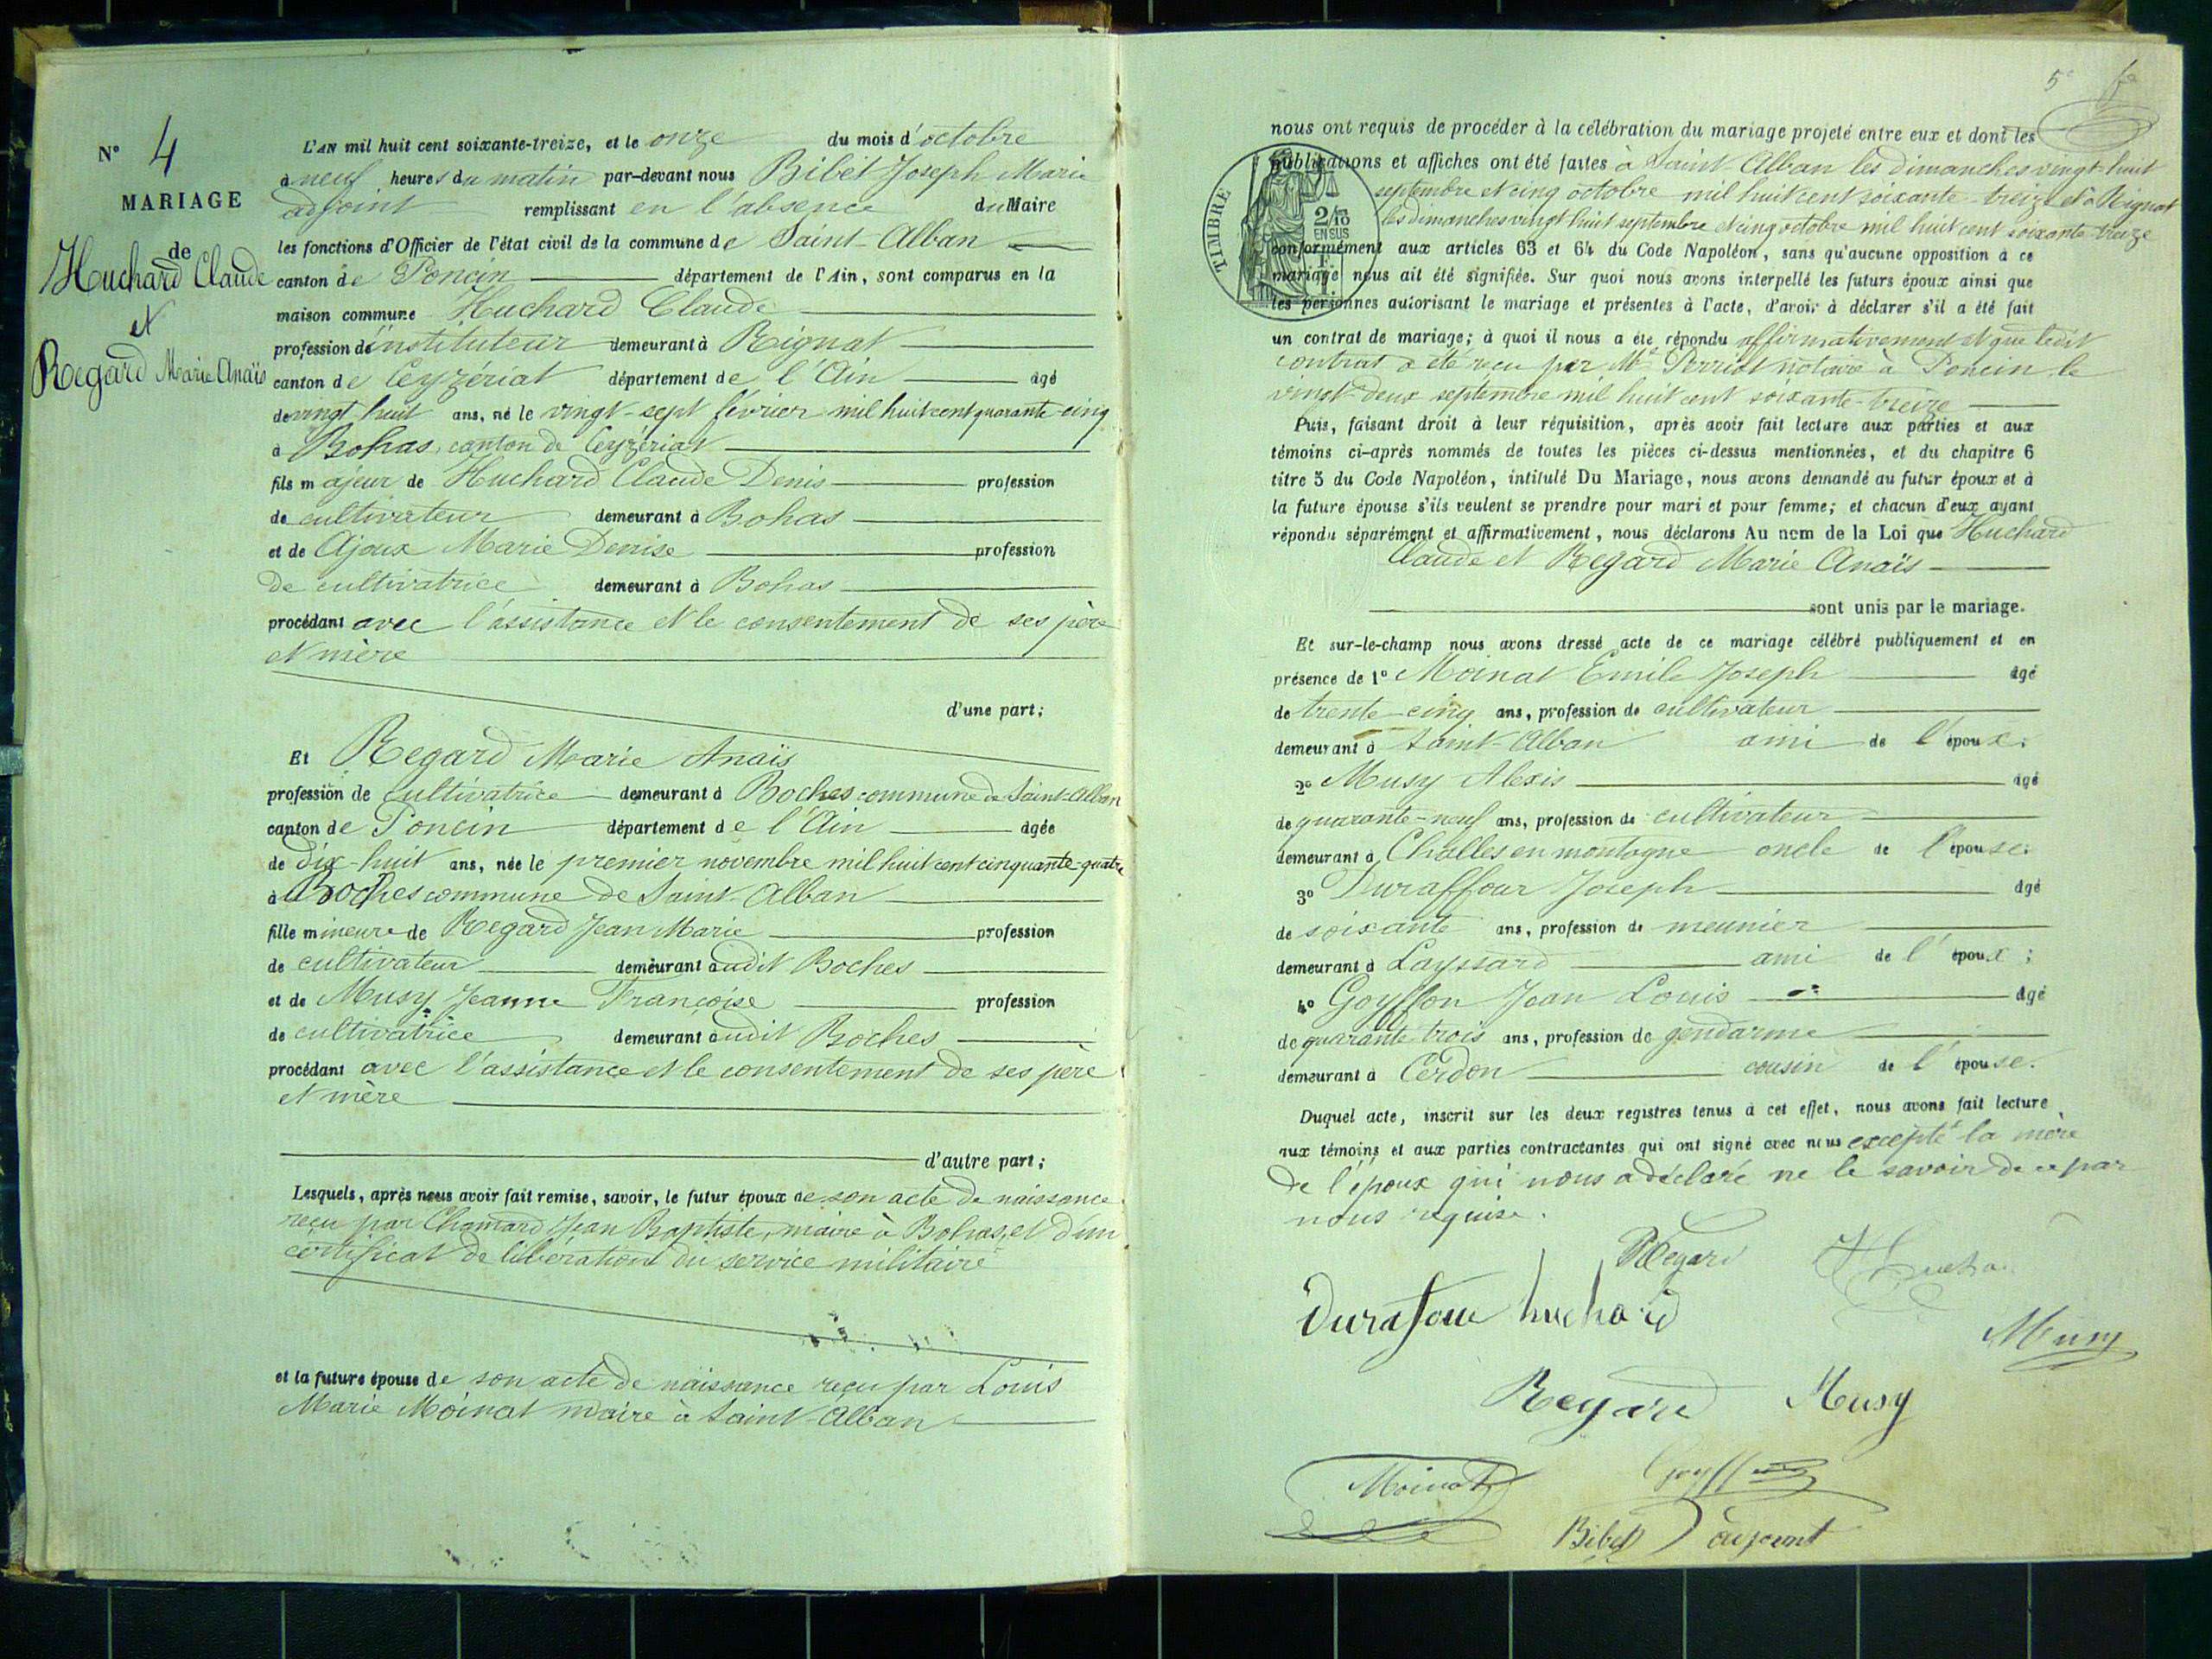 N° 4
MARIAGE
de
Huchard Claude
et
Regard Marie Anaïs
L'AN mil huit cent soixante-treize, et le onze du mois d'octobre
à neuf heures du matin par-devant nous Bibet Joseph Marie
adjoint remplissant en l'absence du Maire
les fonctions d'Officier de l'état civil de la commune de Saint-Alban
canton de Poncin département de l'Ain, sont comparus en la
maison commune Huchard Claude
profession d'instituteur demeurant à Rignat
canton de Ceyzériat département de l'Ain âgé
de vingt huit ans, né le vingt-sept février mil huit cent quarante-cinq
à Bohas, canton de Ceyzériat
fils majeur de Huchard Claude Denis profession
de cultivateur demeurant à Bohas
et de Ajoux Marie Denise profession
de cultivatrice demeurant à Bohas
procédant avec l'assistance et le consentement de ses père
et mère
d'une part;
Et Regard Marie Anaïs
profession de cultivatrice demeurant à Boches commune de Saint-Alban
canton de Poncin département de l'Ain âgée
de dix-huit ans, née le premier novembre mil huit cent cinquante-quatre
à Boches commune de Saint-Alban
fille mineure de Regard Jean Marie profession
de cultivateur demeurant audit Boches
et de Musy Jeanne Françoise profession
de cultivatrice demeurant audit Boches
procédant avec l'assistance et le consentement de ses père
et mère
d'autre part;
Lesquels, après nous avoir fait remise, savoir, le futur époux de son acte de naissance
reçu par Chanard Jean Baptiste, maire à Bohas, et d'un
certificat de libération du service militaire
et la future épouse de son acte de naissance reçu par Louis
Marie Moinat maire à Saint-Alban
5e
nous ont requis de procéder à la célébration du mariage projeté entre eux et dont les
publications et affiches ont été faites à Saint-Alban les dimanches vingt-huit
septembre et cinq octobre mil huit cent soixante-treize et à Rignat
les dimanches vingt huit septembre et cinq octobre mil huit cent soixante-treize
TIMBRE
2/10
EN SUS
conformément aux articles 63 et 64 du Code Napoléon, sans qu'aucune opposition à ce
mariage nous ait été signifiée. Sur quoi nous avons interpellé les futurs époux ainsi que
les personnes autorisant le mariage et présentes à l'acte, d'avoir à déclarer s'il a été fait
un contrat de mariage; à quoi il nous a été répondu affirmativement et que ledit
contrat a été reçu par Me Perriot notaire à Poncin le
vingt-deux septembre mil huit cent soixante-treize
Puis, faisant droit à leur réquisition, après avoir fait lecture aux parties et aux
témoins ci-après nommés de toutes les pièces ci-dessus mentionnées, et du chapitre 6
titre 5 du Code Napoléon, intitulé Du Mariage, nous avons demandé au futur époux et à
la future épouse s'ils veulent se prendre pour mari et pour femme; et chacun d'eux ayant
répondu séparément et affirmativement, nous déclarons Au nom de la Loi que Huchard
Claude et Regard Marie Anaïs
sont unis par le mariage.
Et sur-le-champ nous avons dressé acte de ce mariage célébré publiquement et en
présence de 1° Moinat Emile Joseph âgé
de trente-cinq ans, profession de cultivateur
demeurant à Saint-Alban ami de l'époux;
2° Musy Alexis âgé
de quarante-neuf ans, profession de cultivateur
demeurant à Challes en montagne oncle de l'épouse;
3° Duraffour Joseph âgé
de soixante ans, profession de meunier
demeurant à Layssard ami de l'époux;
4° Goyffon Jean Louis âgé
de quarante trois ans, profession de gendarme
demeurant à Cerdon cousin de l'épouse.
Duquel acte, inscrit sur les deux registres tenus à cet effet, nous avons fait lecture
aux témoins et aux parties contractantes qui ont signé avec nous excepté la mère
de l'époux qui nous a déclaré ne le savoir de ce par
nous requise.
Regard
Durafour huchard
Musy
Regard Musy
Moinat Goyffon
Bibet adjoint